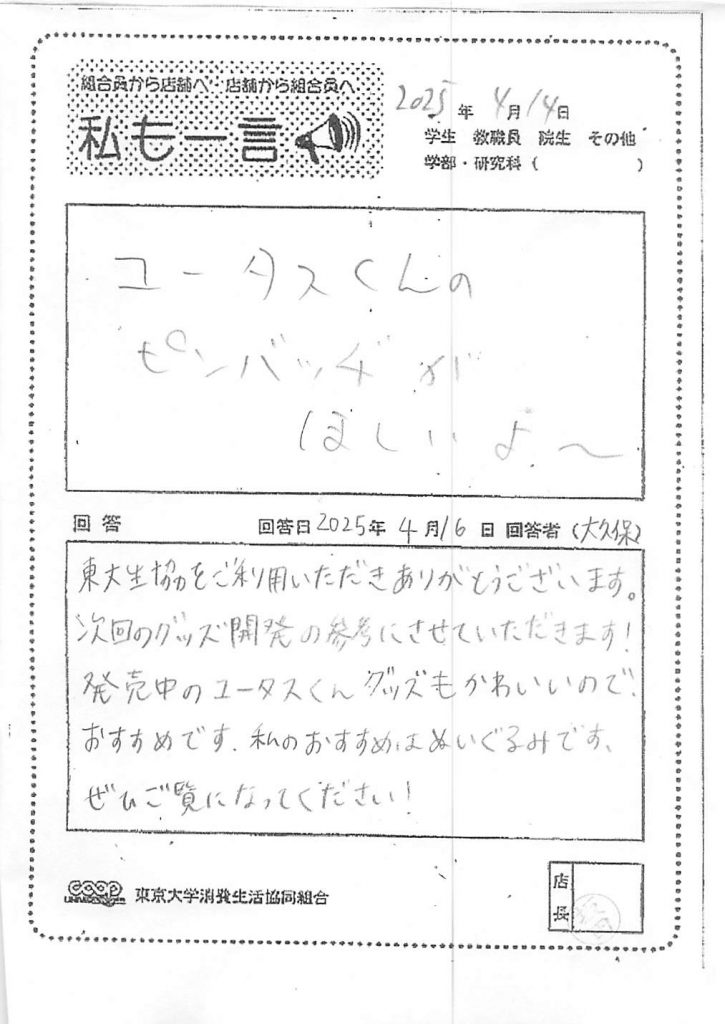 組合員から店舗へ・店舗から組合員へ
私も一言
2025年4月14日
学生 教職員 院生 その他
学部・研究科( )
ユータスくんの
ピンバッヂが
ほしいよ〜
回答 回答日2025年4月16日 回答者(大久保)
東大生協をご利用いただきありがとうございます。
次回のグッズ開発の参考にさせていただきます!
発売中のユータスくんグッズもかわいいので、
おすすめです。私のおすすめはぬいぐるみです、
ぜひご覧になってください!
店長
coop 東京大学消費生活協同組合